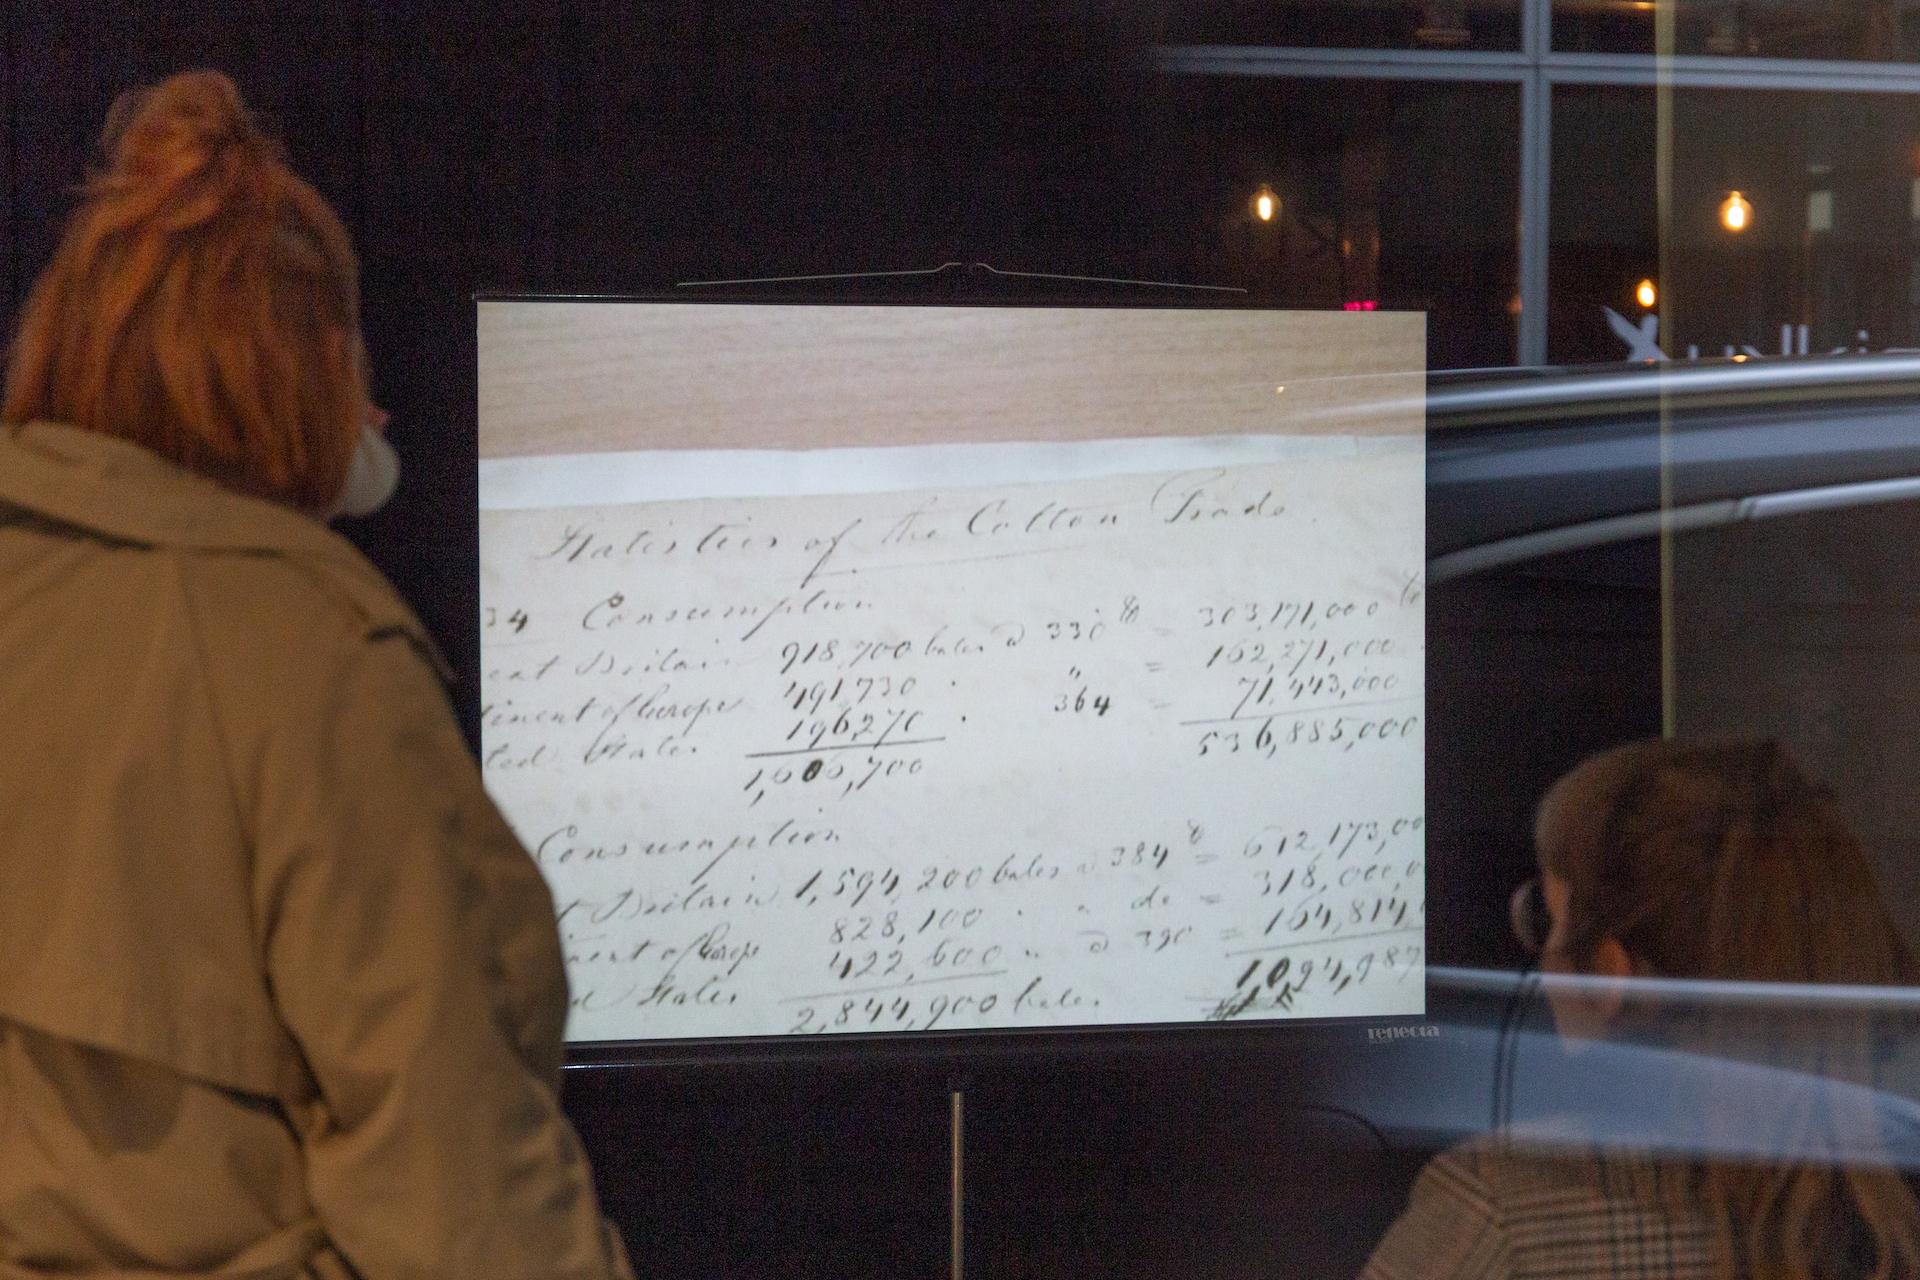 Statistics of the Cotton Trade.
34 Consumption
eat Britain 918,700 bales @ 330 lb = 303,171,000 lb
tinent of Europe 491,730 " = 162,271,000
ted States 196,270 364 = 71,443,000
1,606,700 536,885,000
Consumption
t Britain 1,594,200 bales @ 384 lb = 612,173,00
nent of Europe 828,100 " " do = 318,000,0
d States 422,600 " @ 390 = 164,814,
2,844,900 bales 1,094,987
reflecta